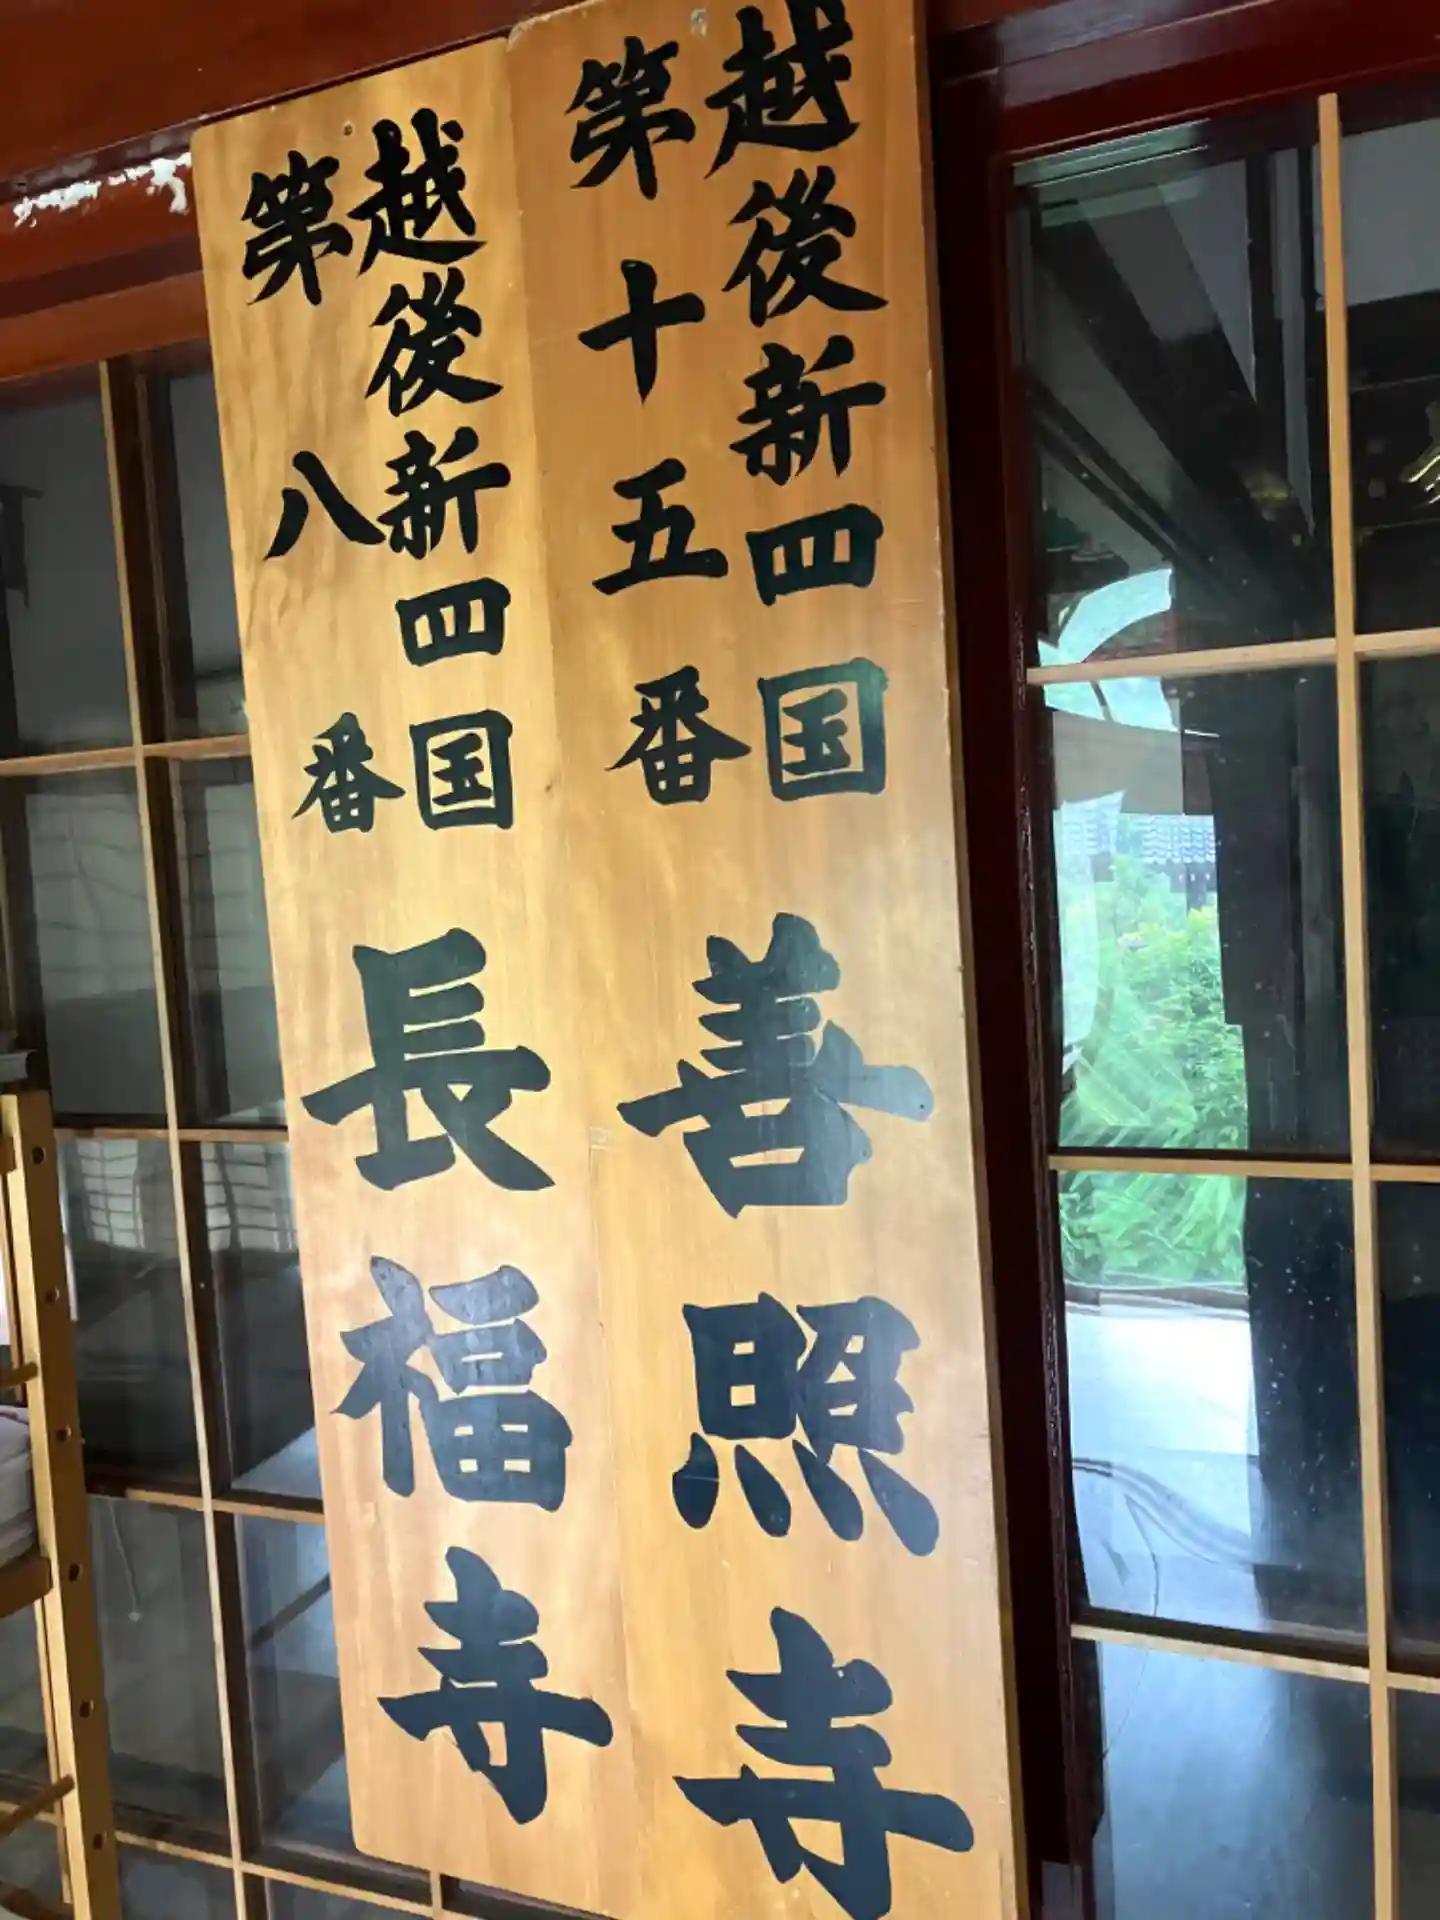 越後新四国
第十五番
善照寺
越後新四国
第八番
長福寺